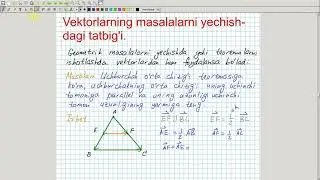 Vektorlarning masalalarni yechish-
dagi tatbig'i.
Geometrik masalalarni yechishda yoki teoremalarni
isbotlashda vektorlardan ham foydalansa bo'ladi.
Masalan: Uchburchak o'rta chizig'i teoremasiga
ko'ra, uchburchakning o'rta chizig'i uning uchinchi
tomoniga parallel va uning uzunligi uchinchi
tomon uzunligining yarmiga teng.
Isbot.
A
E
F
B
C
EF || BC
EF = 1/2
AE = 1/2 AB
AF = 1/2 AC
AF + AE =